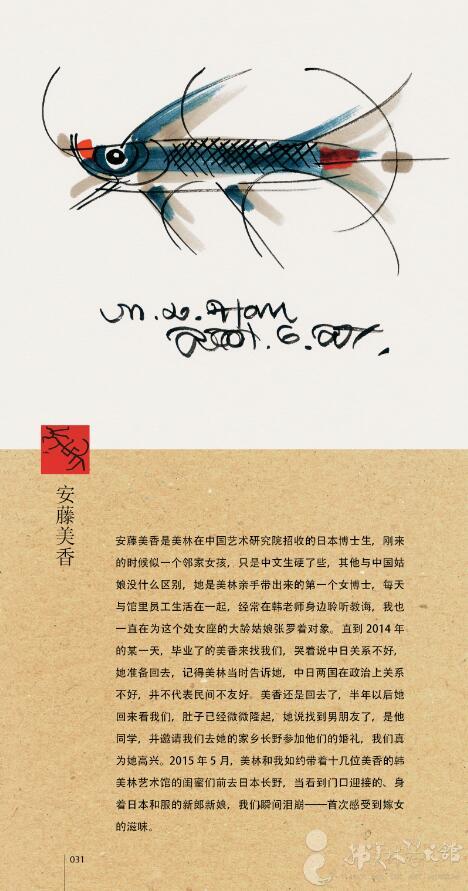 安藤美香
安藤美香是美林在中国艺术研究院招收的日本博士生，刚来
的时候似一个邻家女孩，只是中文生硬了些，其他与中国姑
娘没什么区别，她是美林亲手带出来的第一个女博士，每天
与馆里员工生活在一起，经常在韩老师身边聆听教诲，我也
一直在为这个处女座的大龄姑娘张罗着对象。直到 2014 年
的某一天，毕业了的美香来找我们，哭着说中日关系不好，
她准备回去，记得美林当时告诉她，中日两国在政治上关系
不好，并不代表民间不友好。美香还是回去了，半年以后她
回来看我们，肚子已经微微隆起，她说找到男朋友了，是他
同学，并邀请我们去她的家乡长野参加他们的婚礼，我们真
为她高兴。2015 年 5 月，美林和我如约带着十几位美香的韩
美林艺术馆的闺蜜们前去日本长野，当看到门口迎接的、身
着日本和服的新郎新娘，我们瞬间泪崩——首次感受到嫁女
的滋味。
031